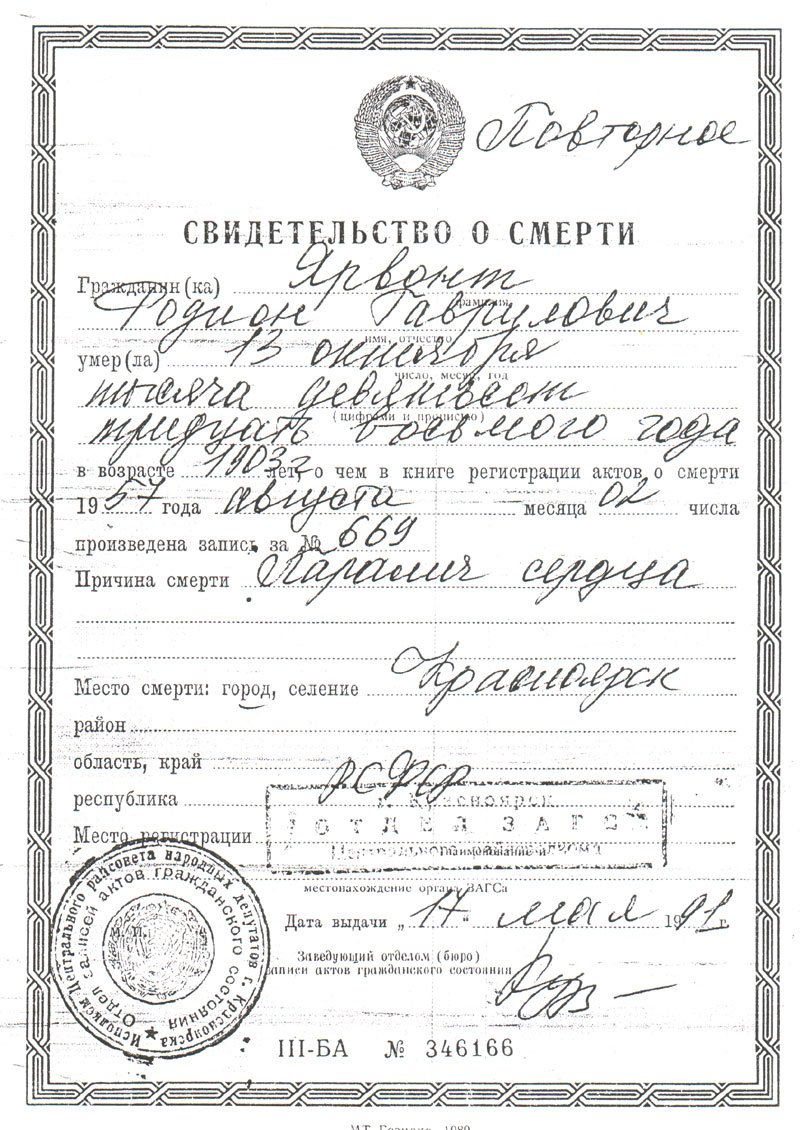 Повторное
СВИДЕТЕЛЬСТВО О СМЕРТИ
Гражданин(ка) Ярвонт
фамилия
Родион Гаврилович
имя, отчество
умер(ла) 13 октября
число, месяц, год
тысяча девятьсот
(цифрами и прописью)
тридцать восьмого года
в возрасте 1903г лет, о чем в книге регистрации актов о смерти
1957 года августа месяца 02 числа
произведена запись за № 669
Причина смерти Паралич сердца
Место смерти: город, селение Красноярск
район
область, край
республика РСФСР
г. Красноярск
Место регистрации ОТДЕЛ ЗАГС
Центрального
наименование и
местонахождение органа ЗАГСа
Дата выдачи „17“ мая 1991 г.
Заведующий отделом (бюро)
записи актов гражданского состояния
М. П.
Исполком Центрального райсовета народных депутатов г. Красноярска
Отдел записей актов гражданского состояния
III-БА № 346166
1989